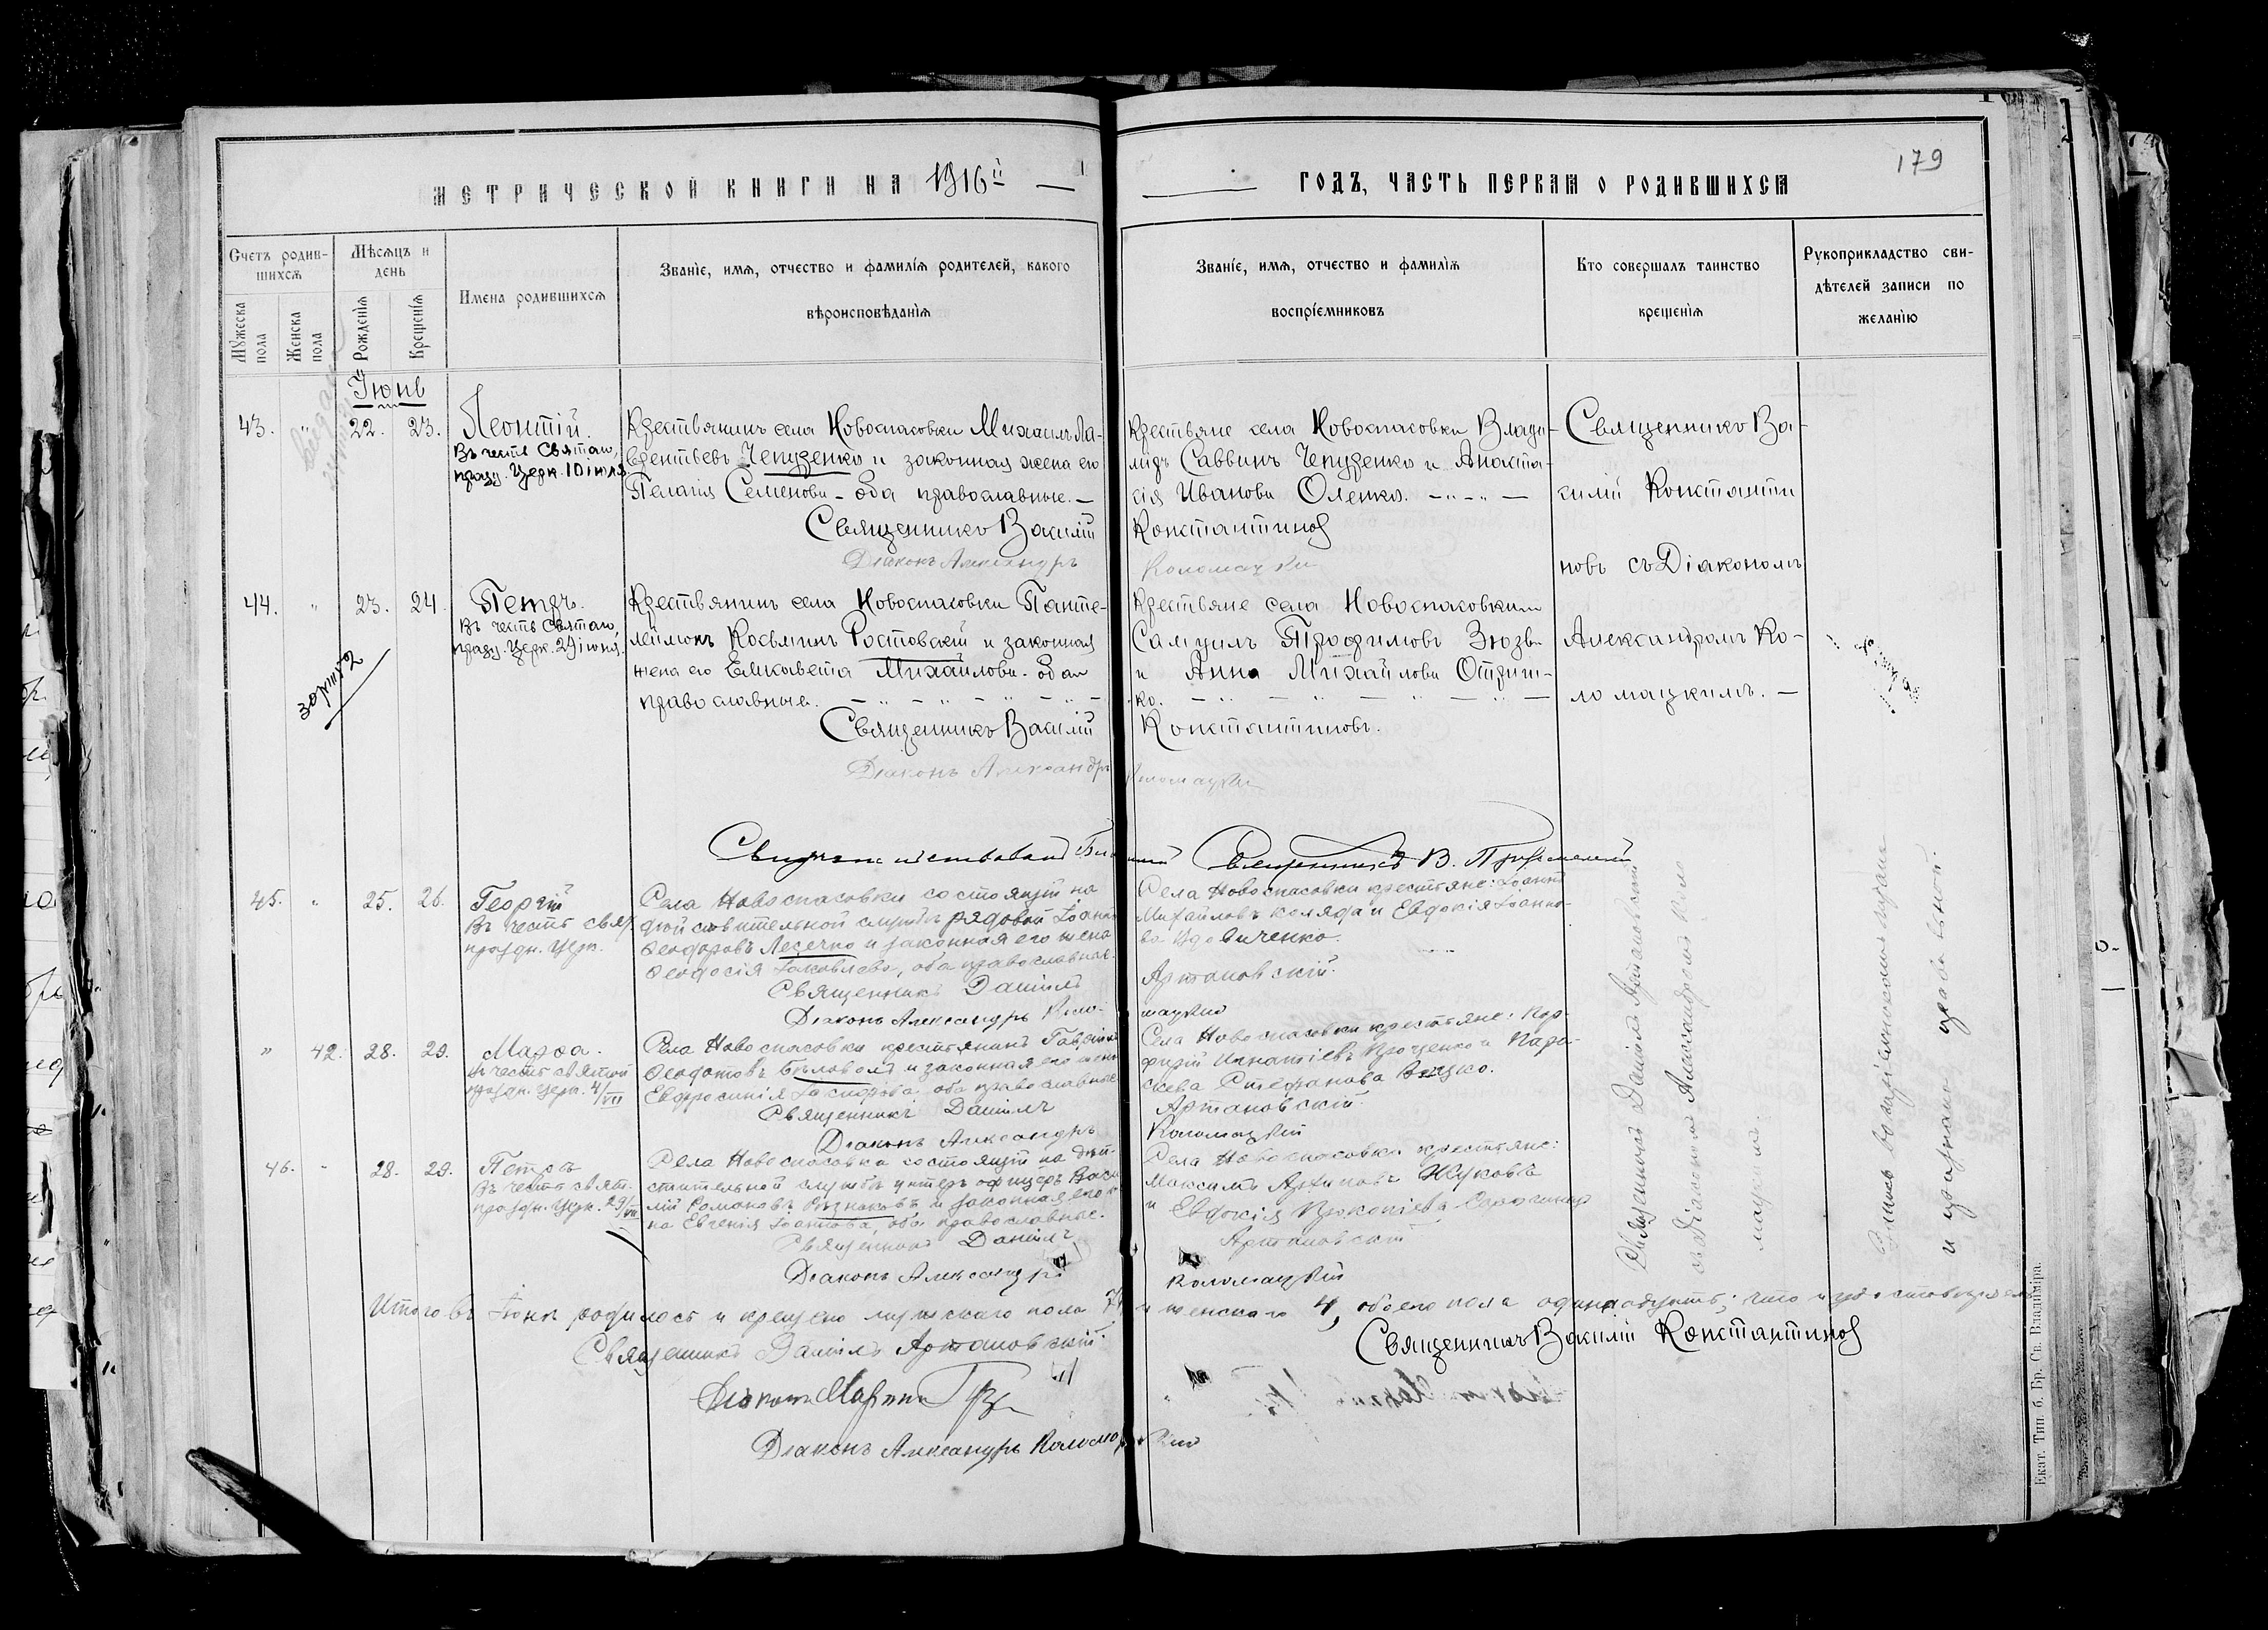 179
МЕТРИЧЕСКОЙ КНИГИ НА 1916й — ГОДЪ, ЧАСТЬ ПЕРВАЯ О РОДИВШИХСЯ
Счетъ родив-
шихся
Мужеска пола
Женска пола
Мѣсяцъ и
день
Рожденія
Крещенія
Имена родившихся
Званіе, имя, отчество и фамилія родителей, какого
вѣроисповѣданія
Званіе, имя, отчество и фамилія
воспріемниковъ
Кто совершалъ таинство
крещенія
Рукоприкладство сви-
дѣтелей записи по
желанію
Іюнь
43. " 22. 23. Леонтій.
Въ честь Святаго,
празд. Церк. 18 іюня
Крестьянинъ села Новоспасовки Михаилъ Ла-
врентьевъ Чепуренко и законная жена его
Пелагія Семенова - оба православные. —
Священникъ Василій Константинов
Діаконъ Александръ Коломацкій
Крестьяне села Новоспасовки Влади-
миръ Саввинъ Чепуренко и Анаста-
сія Иванова Оленко. —
Священникъ Ва-
силій Константи
новъ съ Діакономъ
Александромъ Ко-
ломацкимъ. —
44. " 23. 24. Петръ.
Въ честь Святаго,
празд. Церк. 29 іюня.
Крестьянинъ села Новоспасовки Панте-
леймонъ Косьминъ Ростовскій и законная
жена его Елисавета Михайлова - оба
православные. —
Священникъ Василій Константиновъ.
Діаконъ Александръ Коломацкій
Крестьяне села Новоспасовки
Самуилъ Трофимовъ Зюзь
и Анна Михайлова Отриш-
ко. —
Священникъ В.
45. " 25. 26. Георгій
Въ честь свят.
праздн. Церк.
Села Новоспасовки состоящій на
дѣйствительной службѣ рядовой Іоаннъ
Ѳеодоровъ Лесечко и законная его жена
Ѳеодосія Іаковлева, оба православные.
Священникъ Даніилъ Артановскій.
Діаконъ Александръ Коломацкій
Села Новоспасовки крестьяне: Іоаннъ
Михайловъ Коляда и Евдокія Іоанно-
ва Вдовиченко.
" 42. 28. 29. Марѳа.
въ честь святой
праздн. Церк. 4/VII
Села Новоспасовки крестьянинъ Гавріилъ
Ѳеодотовъ Бѣловолъ и законная его жена
Евфросинія оба православные
Священникъ Даніилъ Артановскій.
Діаконъ Александръ Коломацкій
Села Новоспасовки крестьяне: Пор-
фирій Игнатіевъ Проценко и Пара-
скева Стефанова
46. " 28. 29. Петръ
Въ честь свят.
праздн. Церк. 29/VI
Села Новоспасовки состоящій на дѣй-
ствительной службѣ унтеръ офицеръ Васи
лій Романовъ Рѣзниковъ и законная его же
на Евгенія Іоаннова, оба православные.
Священникъ Даніилъ Артановскій
Діаконъ Александръ Коломацкій
Села Новоспасовки крестьяне:
Максимъ Архиповъ Жуковъ
и Евдокія Прокопіева
Священникъ Даніилъ Артановскій
съ діакономъ Александромъ Коло
мацкимъ.
Итого въ Іюнѣ родилось и крещено мужскаго пола 7, и женскаго 4, обоего пола одиннадцать;
Священникъ Даніилъ Артановскій.
Священникъ Василій Константинов
Діаконъ Александръ Коломацкій
Екат. Тип. б. Бр. Св. Владиміра.